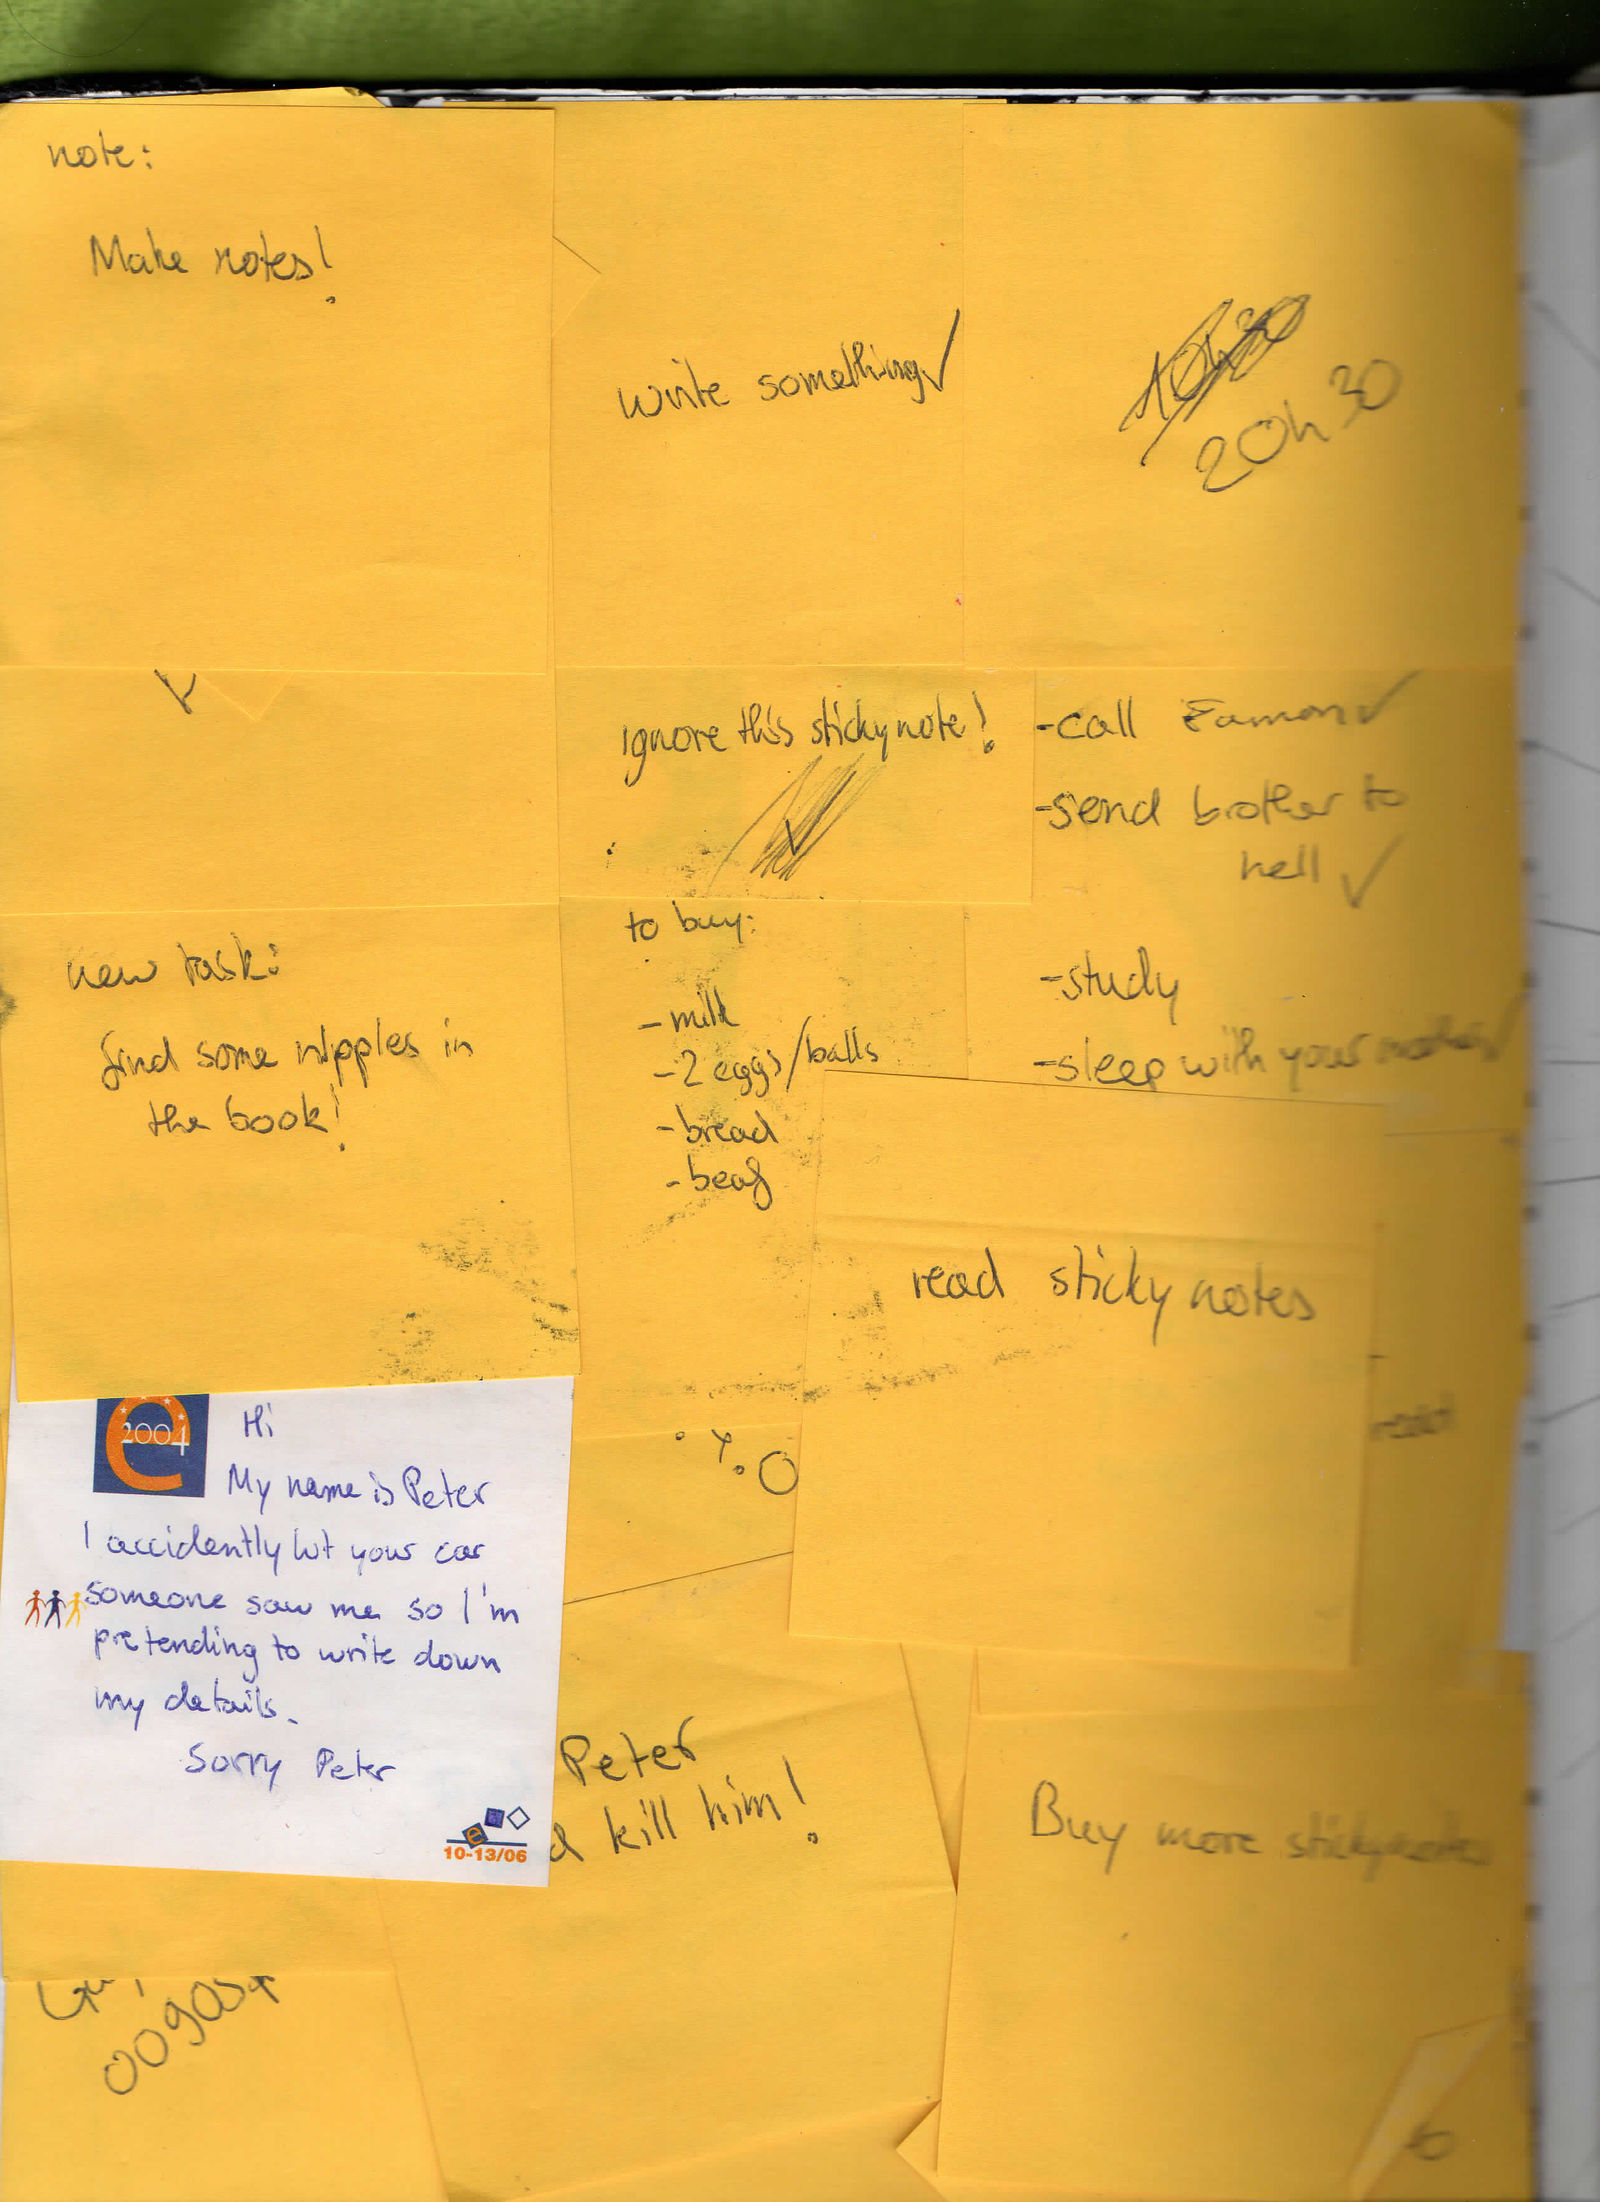 note:
Make notes!
write something
20h30
ignore this stickynote!
-call Eamon
-send brother to
hell
-study
-sleep with your mother
new task:
find some nipples in
the book!
to buy:
- milk
-2 eggs/balls
-bread
-beaf
read sticky notes
2004
Hi
My name is Peter
I accidently hit your car
someone saw me so I'm
pretending to write down
my details.
Sorry Peter
e
10-13/06
Peter
kill him!
Buy more stickynotes